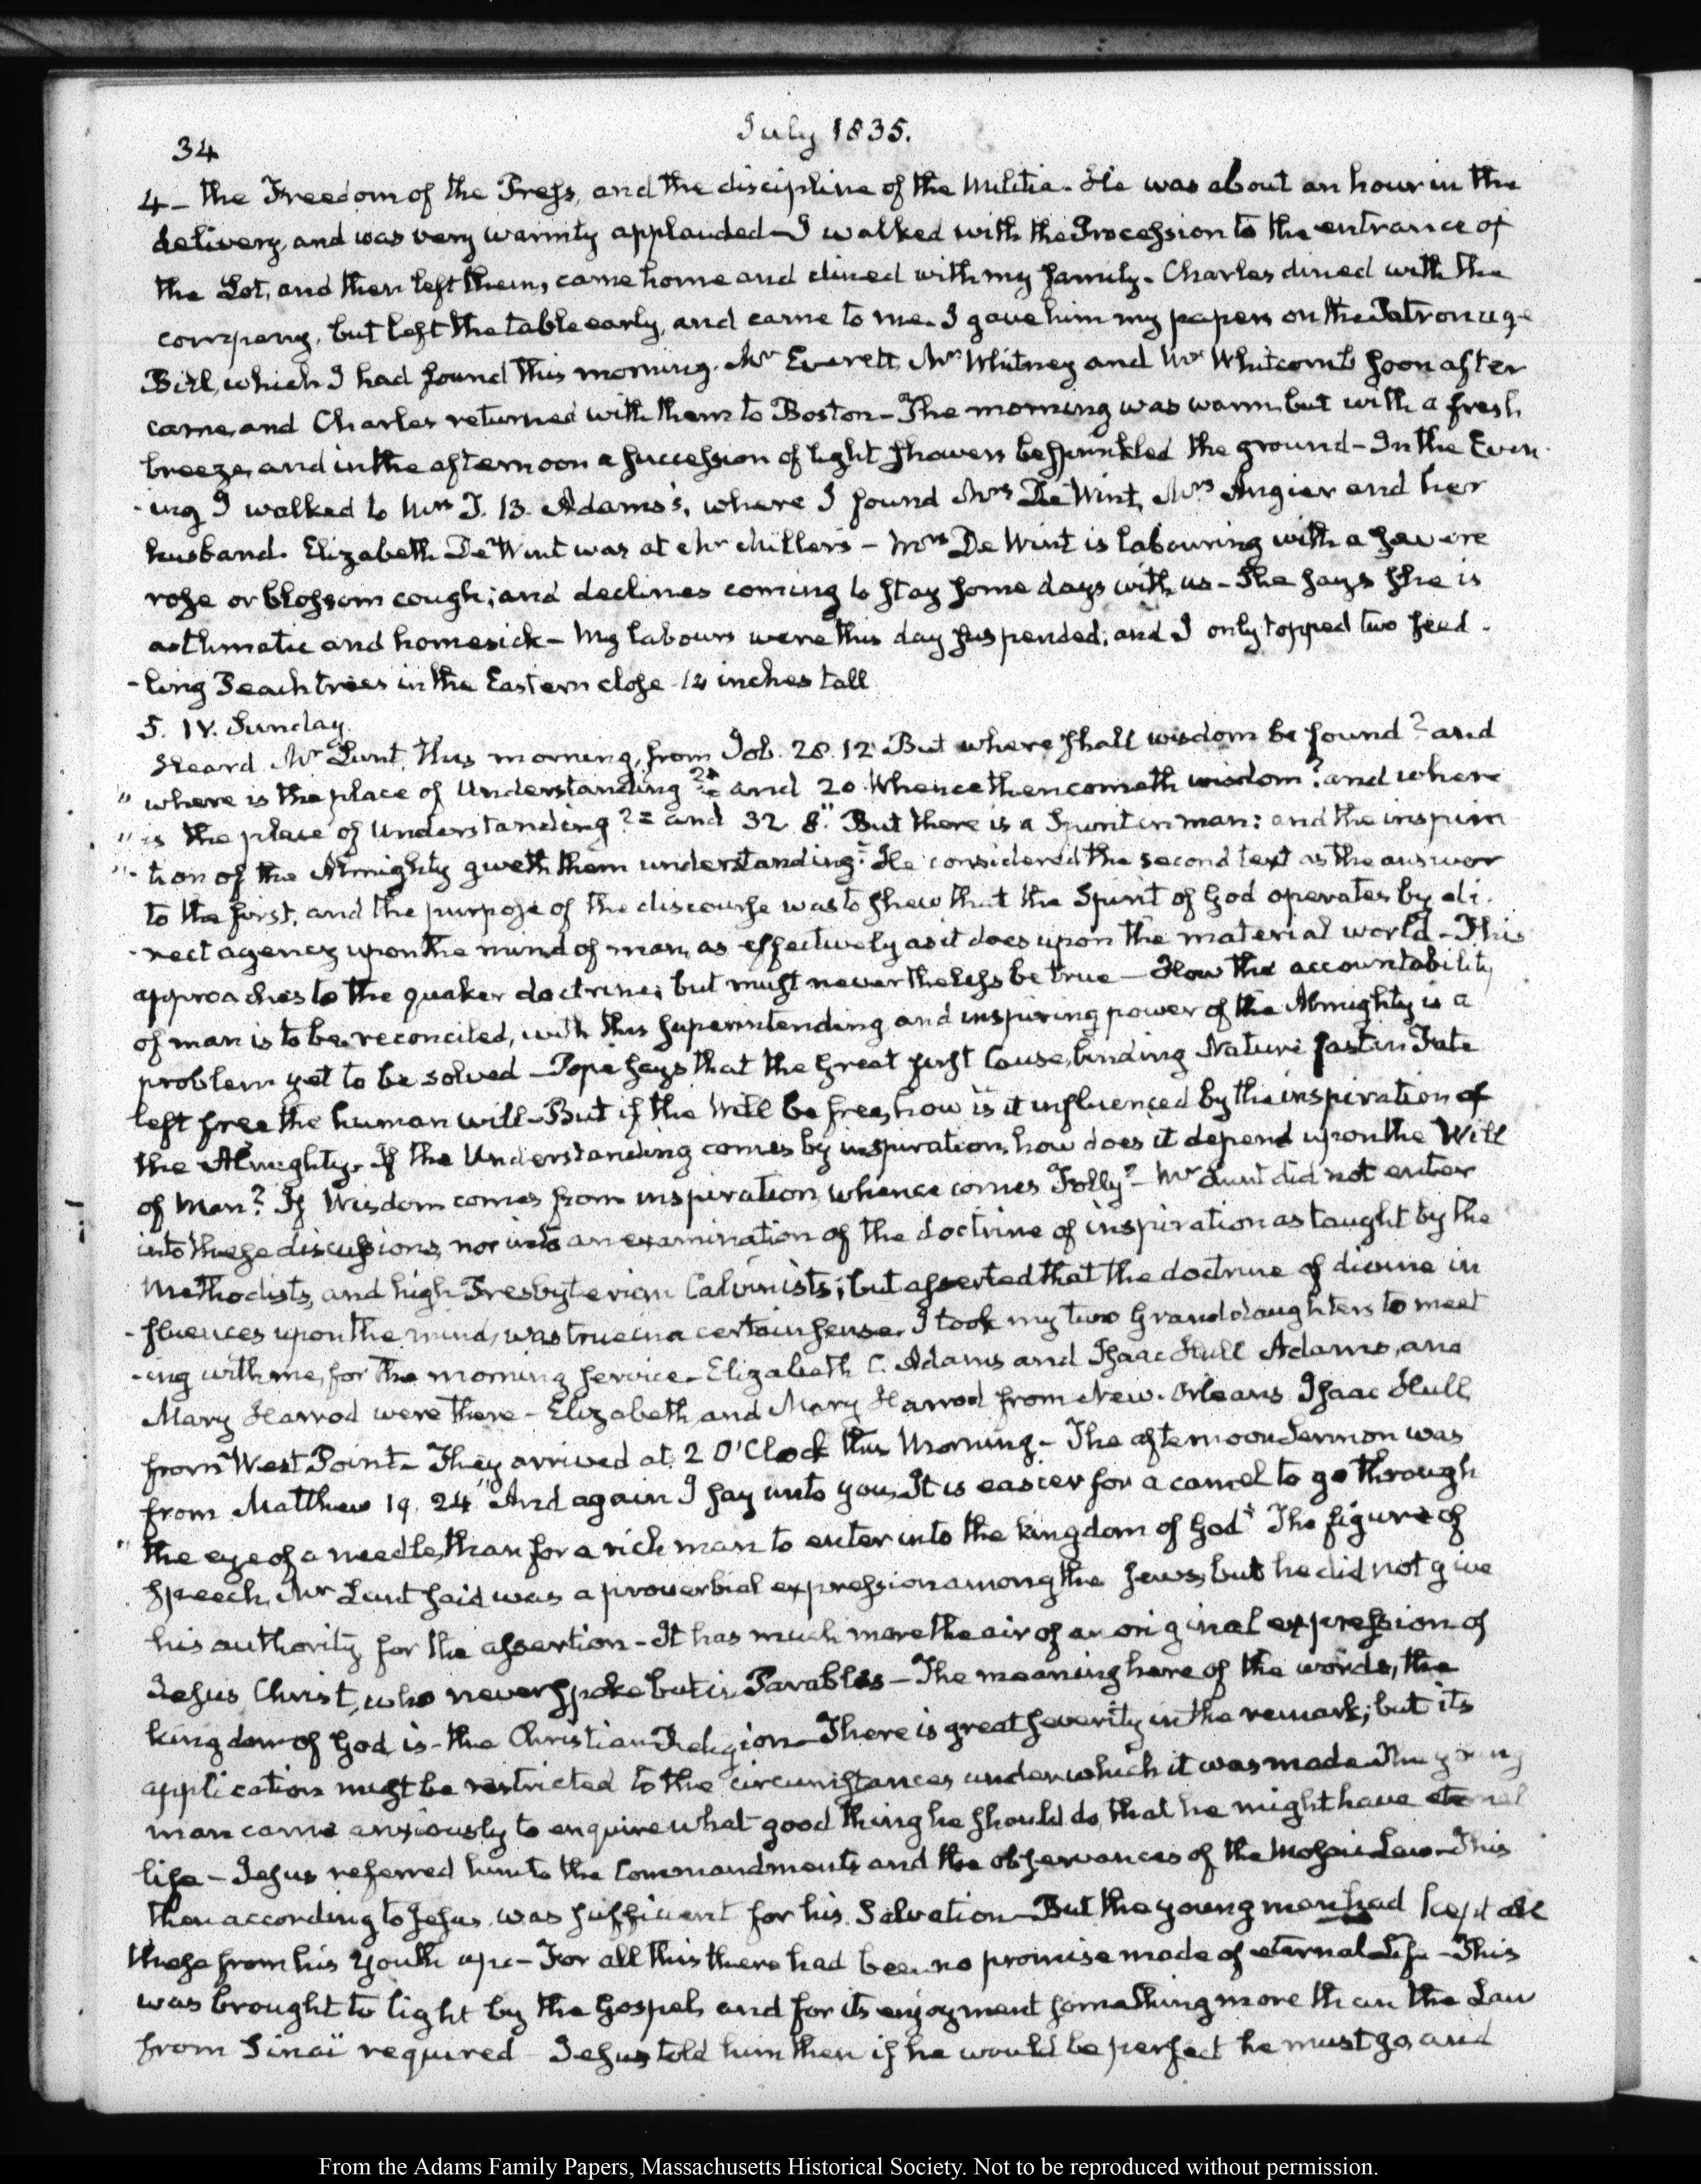 34
July 1835.
4 – the Freedom of the Press, and the discipline of the Militia. He was about an hour in the
delivery, and was very warmly applauded – I walked with the Procession to the entrance of
the Lot, and then left them, came home and dined with my family. Charles dined with the
company, but left the table early, and came to me. I gave him my papers on the Patronage
Bill, which I had found this morning. Mr Everett, Mr Whitney and Mr Whitcomb soon after
came, and Charles returned with them to Boston – The morning was warm but with a fresh
breeze, and in the afternoon a succession of light showers besprinkled the ground – In the Even-
-ing I walked to Mrs T. B. Adams's, where I found Mrs De Wint, Mrs Angier and her
husband. Elizabeth De Wint was at Mr Miller's – Mrs De Wint is labouring with a severe
rose or blossom cough; and declines coming to stay some days with us – She says she is
asthmatic and homesick – My labours were this day suspended; and I only topped two seed-
-ling Peach trees in the Eastern close 14 inches tall
5. IV. Sunday.
Heard Mr Lunt, this morning, from Job. 28. 12 But where shall wisdom be found? and
" where is the place of Understanding? and 20. Whence then cometh wisdom? and where
" is the place of Understanding? = and 32. 8." But there is a Spirit in man: and the inspira
" - tion of the Almighty giveth them understanding." He considered the second text as the answer
to the first, and the purpose of the discourse was to shew that the Spirit of God operates by di-
-rect agency upon the mind of man, as effectively as it does upon the material world – This
approaches to the quaker doctrine; but must nevertheless be true – How the accountability
of man is to be reconciled, with this superintending and inspiring power of the Almighty is a
problem yet to be solved – Pope says that the Great first Cause, binding Nature fast in Fate
left free the human will – But if the Will be free, how is it influenced by the inspiration of
the Almighty. If the Understanding comes by inspiration, how does it depend upon the Will
of Man? If Wisdom comes from inspiration, whence comes Folly? – Mr Lunt did not enter
into these discussions, nor into an examination of the doctrine of inspiration as taught by the
Methodists, and high Presbyterian Calvinists; but asserted that the doctrine of divine in
-fluences upon the mind, was true in a certain sense. I took my two Granddaughters to meet
-ing with me, for the morning service – Elizabeth C. Adams and Isaac Hull Adams, and
Mary Harrod were there – Elizabeth and Mary Harrod from New-Orleans Isaac Hull,
from West Point – They arrived at 2 O'Clock this Morning – The afternoon Sermon was
from Matthew 19. 24 "And again I say unto you, It is easier for a camel to go through
" the eye of a needle, than for a rich man to enter into the kingdom of God" The figure of
speech, Mr Lunt said was a proverbial expression among the Jews, but he did not give
his authority for the assertion – It has much more the air of an original expression of
Jesus Christ, who never spoke but in Parables – The meaning here of the words, the
kingdom of God, is – the Christian Religion – There is great severity in the remark; but its
application must be restricted to the circumstances under which it was made The young
man came anxiously to enquire what good thing he should do, that he might have eternal
life – Jesus referred him to the Commandments and the observances of the Mosaic Law – This
then according to Jesus was sufficient for his Salvation – But the young man had kept all
these from his youth up – For all this there had been no promise made of eternal Life – This
was brought to light by the Gospel, and for its enjoyment something more than the Law
from Sinaï required Jesus told him then if he would be perfect he must go, and
From the Adams Family Papers, Massachusetts Historical Society. Not to be reproduced without permission.